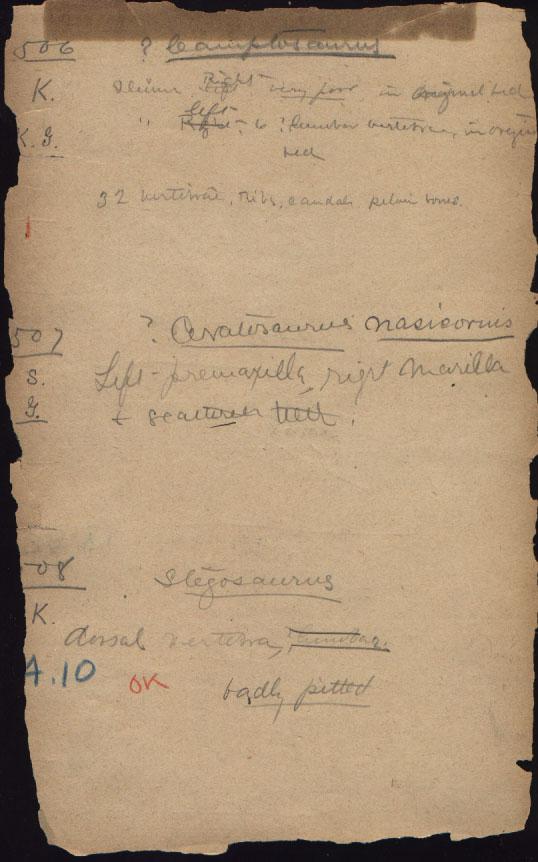 506 ? Camptosaurus
K. Ilium Right left very poor in original bed
K.G. " left Right & ? lumbar vertebra, in original
bed
32 vertebrae, ribs, caudals pelvic bones.
507 ? Ceratosaurus nasicornis
S. Left premaxilla, right Maxilla
G. + scattered teeth.
508 Stegosaurus
K.
dorsal vertebra, ? lumbar.
A.10 OK badly pitted